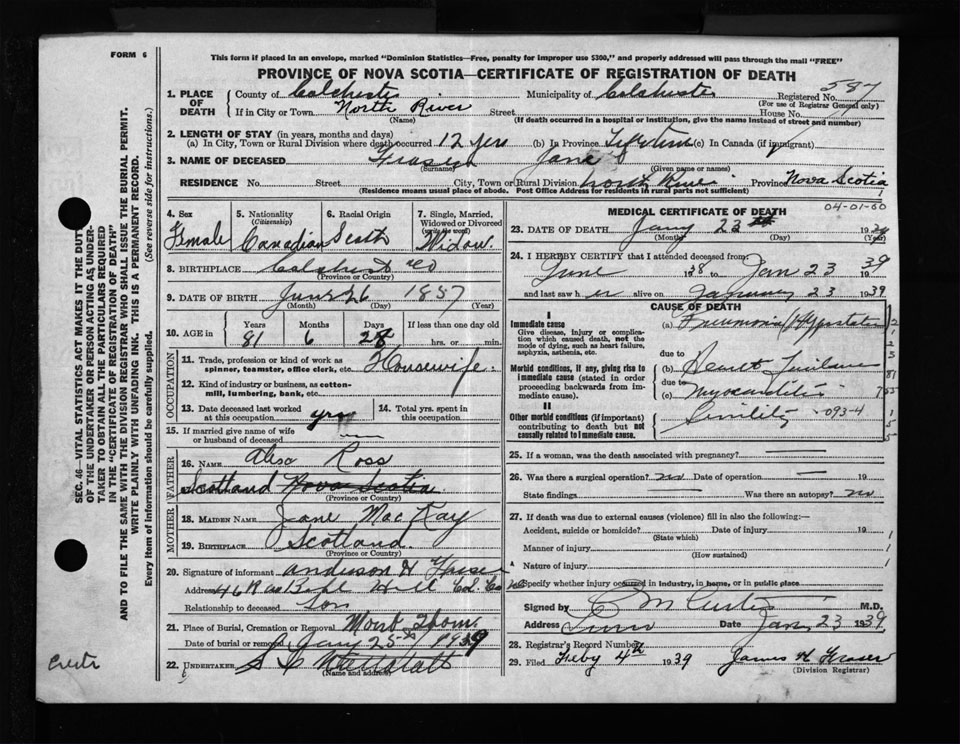 FORM 6
This form if placed in an envelope, marked "Dominion Statistics—Free, penalty for improper use $300," and properly addressed will pass through the mail "FREE"
PROVINCE OF NOVA SCOTIA—CERTIFICATE OF REGISTRATION OF DEATH
587
1. PLACE OF DEATH County of Colchester Municipality of Colchester Registered No.
(For use of Registrar General only)
If in City or Town North River Street House No.
(Name) (If death occurred in a hospital or institution, give the name instead of street and number)
2. LENGTH OF STAY (in years, months and days)
(a) In City, Town or Rural Division where death occurred 12 yrs (b) In Province Lifetime (c) In Canada (if immigrant)
3. NAME OF DECEASED Fraser Jane
(Surname) (Given name or names)
RESIDENCE No. Street City, Town or Rural Division North River Province Nova Scotia
(Residence means usual place of abode. Post Office Address for residents in rural parts not sufficient)
4. Sex Female
5. Nationality (Citizenship) Canadian
6. Racial Origin Scotch
7. Single, Married, Widowed or Divorced (write the word) Widow
8. BIRTHPLACE Colchester Co
(Province or Country)
9. DATE OF BIRTH June 26 1857
(Month) (Day) (Year)
10. AGE in Years Months Days If less than one day old
81 6 28 hrs. or min.
OCCUPATION
11. Trade, profession or kind of work as spinner, teamster, office clerk, etc. Housewife
12. Kind of industry or business, as cotton-mill, lumbering, bank, etc.
13. Date deceased last worked at this occupation yrs
14. Total yrs. spent in this occupation
15. If married give name of wife or husband of deceased
FATHER
16. NAME Ross
Scotland Nova Scotia
(Province or Country)
MOTHER
18. MAIDEN NAME Jane MacKay
19. BIRTHPLACE Scotland
(Province or Country)
20. Signature of informant Anderson H Fraser
Address Hill Col. Co
Relationship to deceased Son
21. Place of Burial, Cremation or Removal Mount Thom
Date of burial or removal Jany 25th 1939
22. UNDERTAKER
(Name and address)
04-01-60
MEDICAL CERTIFICATE OF DEATH
23. DATE OF DEATH Jany 23 19
(Month) (Day) (Year)
24. I HEREBY CERTIFY that I attended deceased from:
June 1938 to Jan 23 1939
and last saw her alive on January 23 1939
CAUSE OF DEATH
I
Immediate cause
Give disease, injury or complication which caused death, not the mode of dying, such as heart failure, asphyxia, asthenia, etc.
(a) Pneumonia Hypostatic
due to
Morbid conditions, if any, giving rise to immediate cause (stated in order proceeding backwards from immediate cause).
(b)
due to
(c) Myocarditis
II
Other morbid conditions (if important) contributing to death but not causally related to immediate cause.
Senility
093-4
25. If a woman, was the death associated with pregnancy?
26. Was there a surgical operation? no Date of operation 19
State findings Was there an autopsy? no
27. If death was due to external causes (violence) fill in also the following:—
Accident, suicide or homicide? Date of injury 19
(State which)
Manner of injury
(How sustained)
Nature of injury
Specify whether injury occurred in industry, in home, or in public place
Signed by M.D.
Address Truro Date Jan 23 1939
28. Registrar's Record Number
29. Filed Feby 4th 1939 James H Fraser
(Division Registrar)
SEC. 46—VITAL STATISTICS ACT MAKES IT THE DUTY
OF THE UNDERTAKER OR PERSON ACTING AS UNDER-
TAKER TO OBTAIN ALL THE PARTICULARS REQUIRED
IN THE "CERTIFICATE OF REGISTRATION OF DEATH"
AND TO FILE THE SAME WITH THE DIVISION REGISTRAR WHO SHALL ISSUE THE BURIAL PERMIT.
WRITE PLAINLY WITH UNFADING INK. THIS IS A PERMANENT RECORD.
Every item of information should be carefully supplied. (See reverse side for instructions.)